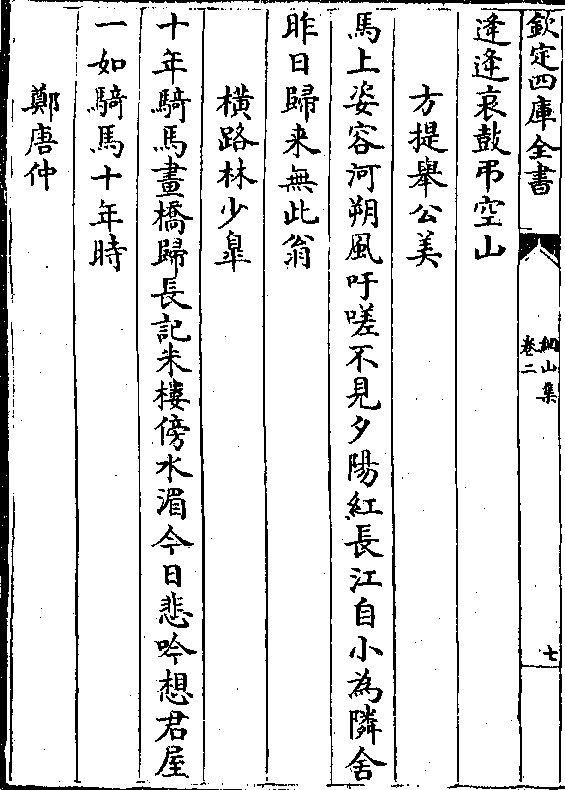 欽定四庫全書
山集
卷二
七
逢逢哀鼓弔空山
方提舉公美
馬上姿容河朔風吁嗟不見夕陽紅長江自小為隣舍
昨日歸来無此翁
橫路林少皐
十年騎馬畫橋歸長記朱樓傍水湄今日悲吟想君屋
一如騎馬十年時
鄭唐仲